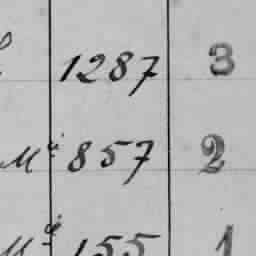 1287 3
Mª 857 2
Mª 155 1